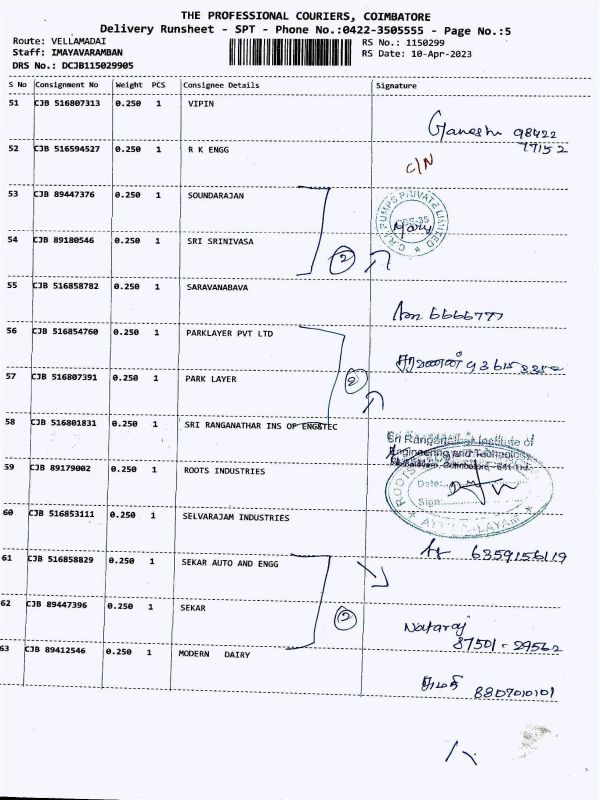 THE PROFESSIONAL COURIERS, COIMBATORE
Delivery Runsheet - SPT - Phone No.:0422-3505555 - Page No.:5
Route: VELLAMADAI
RS No.: 1150299
Staff: IMAYAVARAMBAN
RS Date: 10-Apr-2023
DRS No.: DCJB115029905
S No Consignment No Weight PCS Consignee Details Signature
51 CJB 516807313 0.250 1 VIPIN
Ganesh 98422
77152
52 CJB 516594527 0.250 1 R K ENGG
C/N
53 CJB 89447376 0.250 1 SOUNDARAJAN
C.R.I. PUMPS PRIVATE LIMITED
54 CJB 89180546 0.250 1 SRI SRINIVASA
2
55 CJB 516858782 0.250 1 SARAVANABAVA
6666777
56 CJB 516854760 0.250 1 PARKLAYER PVT LTD
சரவணன்
57 CJB 516807391 0.250 1 PARK LAYER
2
58 CJB 516801831 0.250 1 SRI RANGANATHAR INS OF ENG&TEC
Sri Ranganathar Institute of
Engineering and Technology
59 CJB 89179002 0.250 1 ROOTS INDUSTRIES
Date:
Sign:
60 CJB 516853111 0.250 1 SELVARAJAM INDUSTRIES
6359156119
61 CJB 516858829 0.250 1 SEKAR AUTO AND ENGG
62 CJB 89447396 0.250 1 SEKAR
2
Nataraj
87501-29562
63 CJB 89412546 0.250 1 MODERN DAIRY
சுமதி 8807010101